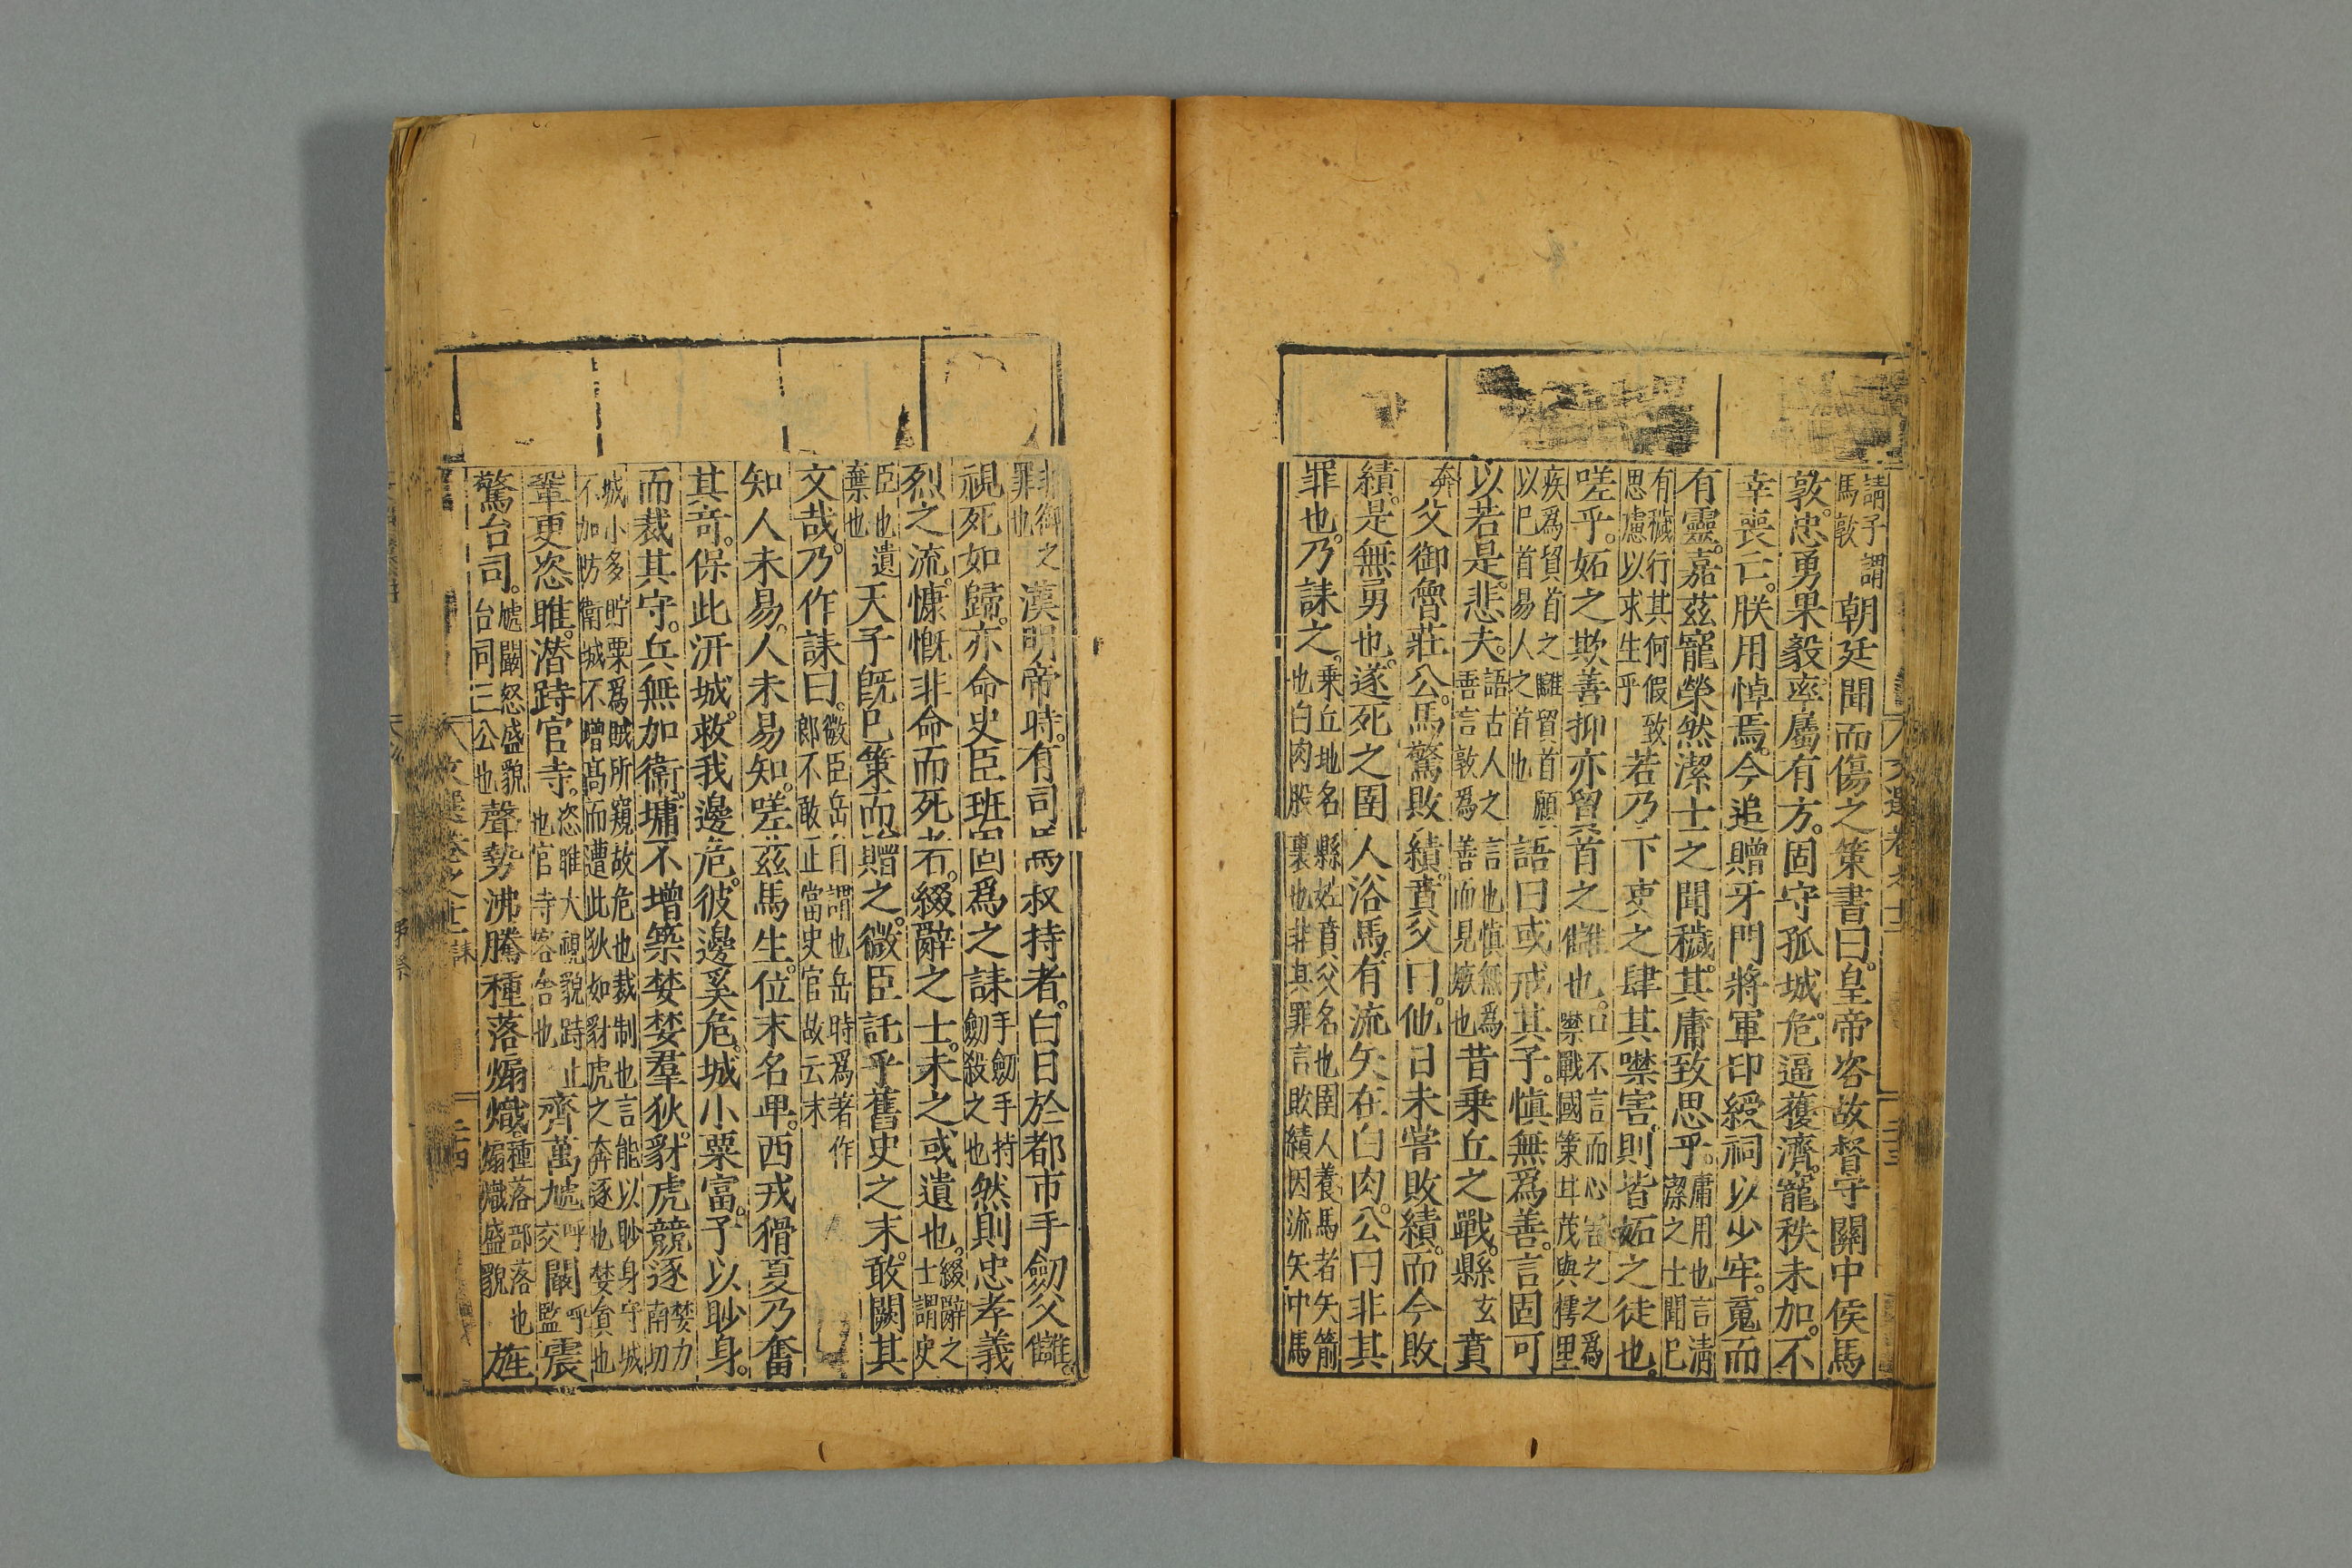 請子謂
馬敦
朝廷聞而傷之策書曰皇帝咨故督守關中侯馬
敦忠勇果毅率屬有方固守孤城危逼獲濟寵秩未加不
幸喪亡朕用悼焉今追贈牙門將軍印綬祠以少牢䰟而
有靈嘉茲寵榮然潔士之聞穢其庸致思乎
庸用也言清
潔之士聞已
有穢行其何假致
思慮以求生乎
若乃下吏之肆其噤害則皆妬之徒也
嗟乎妬之欺善抑亦貿首之讎也
口不言而心害之之爲
噤戰國策甘茂與樗里
疾爲貿首之讎貿首願
以巳首易人之首也
語曰或戒其子慎無爲善言固可
以若是悲夫
語古人之言也慎無爲
善言敦爲善而見嫉也
昔乗丘之戰縣
玄
賁
奔
父御魯莊公馬驚敗績賁父曰他日未嘗敗績而今敗
績是無勇也遂死之圉人浴馬有流矢在白肉公曰非其
罪也乃誄之
乗丘地名縣姓賁父名也圉人養馬者矢箭
也白肉股裏也非其罪言敗績因流矢中馬
非御之
罪也
漢明帝時有司馬叔持者白日於都市手劒父讎
視死如歸亦命史臣班固爲之誄
手劒手持
劒殺之也
然則忠孝義
烈之流慷慨非命而死者綴辭之士未之或遺也
綴辭之
士謂史
臣也遺
棄也
天子旣巳策而贈之微臣託乎舊史之末敢闕其
文哉乃作誄曰
微臣岳自謂也岳時爲著作
郎不敢正當史官故云末
知人未易人未易知嗟茲馬生位末名卑西戎猾夏乃奮
其奇保此汧城救我邊危彼邊奚危城小粟富予以眇身
而裁其守兵無加衞墉不增築婪婪羣狄豺虎競逐
婪力
南切
城小多貯粟爲賊所窺故危也裁制也言能以眇身守城
不加防衞城不增髙而遭此狄如豺虎之奔逐也婪貪也
鞏更恣睢潛跱官寺
恣睢大視貌跱止
也官寺客舍也
齊萬虓
呼
交
闞
呼
監
震
驚台司
虓闞怒盛貌
台司三公也
聲勢沸騰種落煽熾
種落部落也
煽熾盛貌
旌
文選卷之十二
誄
二十四